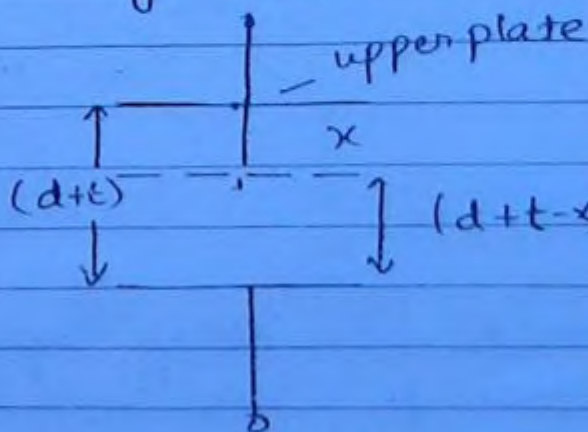 upper plate
x
(d+t)
(d+t-x